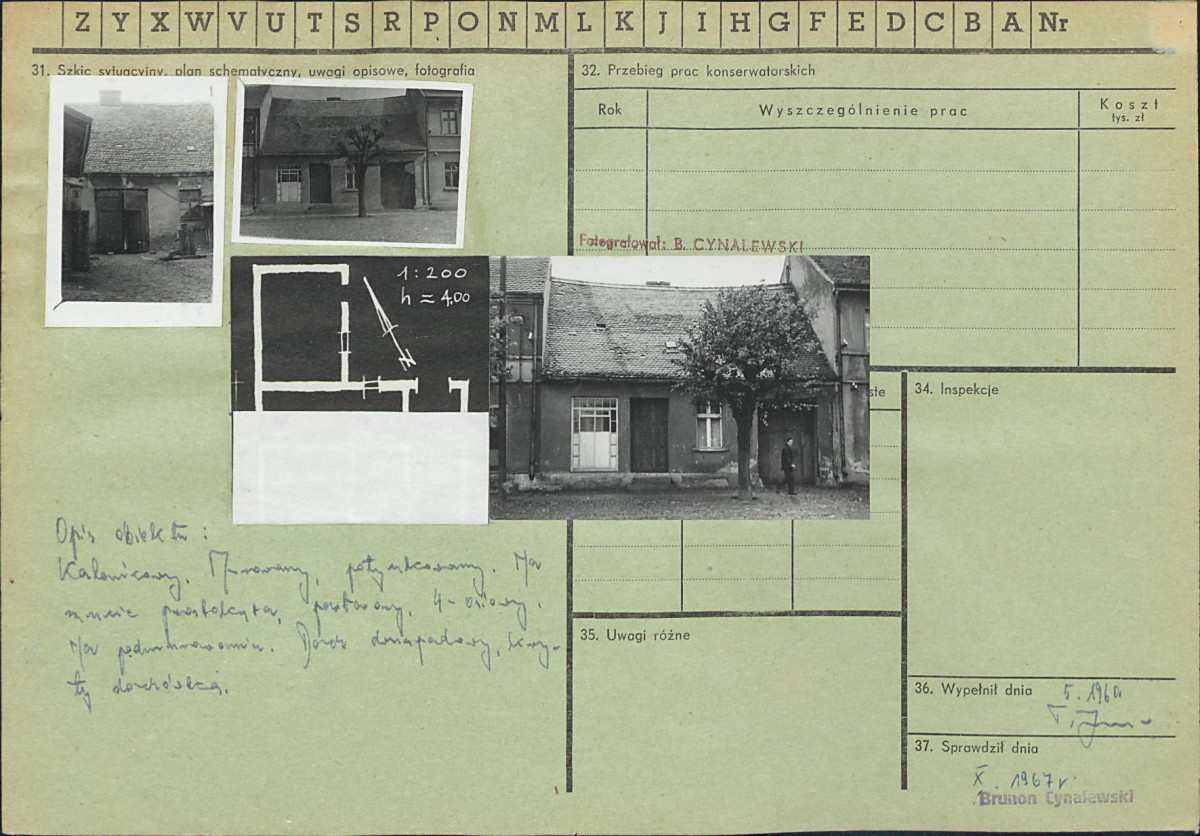 Z Y X W V U T S R P O N M L K J I H G F E D C B A Nr
31. Szkic sytuacyjny, plan schematyczny, uwagi opisowe, fotografia
1:200
h = 4,00
N
Opis obiektu:
Kalenicowy. Murowany, potynkowany. Na
rzucie prostokąta, parterowy, 4-osiowy.
Na podmurowaniu. Dach dwuspadowy, kry-
ty dachówką.
32. Przebieg prac konserwatorskich
Rok
Wyszczególnienie prac
Koszt
tys. zł
Fotografował: B. CYNALEWSKI
34. Inspekcje
35. Uwagi różne
36. Wypełnił dnia
37. Sprawdził dnia
X. 1967 r.
Brunon Cynalewski